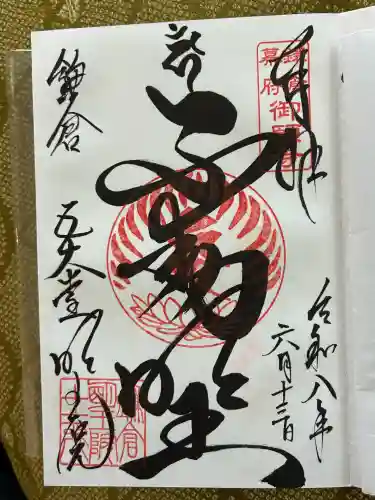 奉拝
令和八年
六月十三日
鎌倉幕府御願寺
大不動明王
鎌倉
五大堂明王院
鎌倉明王院